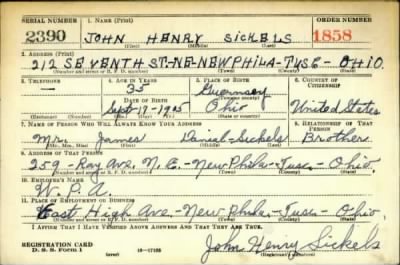 SERIAL NUMBER 1. NAME (Print) ORDER NUMBER
2390 JOHN HENRY SICKELS 1858
(First) (Middle) (Last)
2. ADDRESS (Print)
212 SEVENTH ST-NE-NEW PHILA-TUSC-OHIO.
(Number and street or R. F. D. number) (Town) (County) (State)
3. TELEPHONE 4. AGE IN YEARS 5. PLACE OF BIRTH 6. COUNTRY OF CITIZENSHIP
— 35 Guernsey
DATE OF BIRTH (Town or county)
Sept-17-1905 Ohio United States
(Exchange) (Number) (Mo.) (Day) (Yr.) (State or country)
7. NAME OF PERSON WHO WILL ALWAYS KNOW YOUR ADDRESS 8. RELATIONSHIP OF THAT PERSON
Mr. James Daniel-Sickels Brother
(Mr., Mrs., Miss) (First) (Middle) (Last)
9. ADDRESS OF THAT PERSON
259-Ray Ave. N.E.-New Phila-Tusc-Ohio.
(Number and street or R. F. D. number) (Town) (County) (State)
10. EMPLOYER'S NAME
W.P.A.
11. PLACE OF EMPLOYMENT OR BUSINESS
East High Ave-New Phila-Tusc-Ohio.
(Number and street or R. F. D. number) (Town) (County) (State)
I AFFIRM THAT I HAVE VERIFIED ABOVE ANSWERS AND THAT THEY ARE TRUE.
REGISTRATION CARD
D. S. S. Form 1 (over) 16-17105 John Henry Sickels